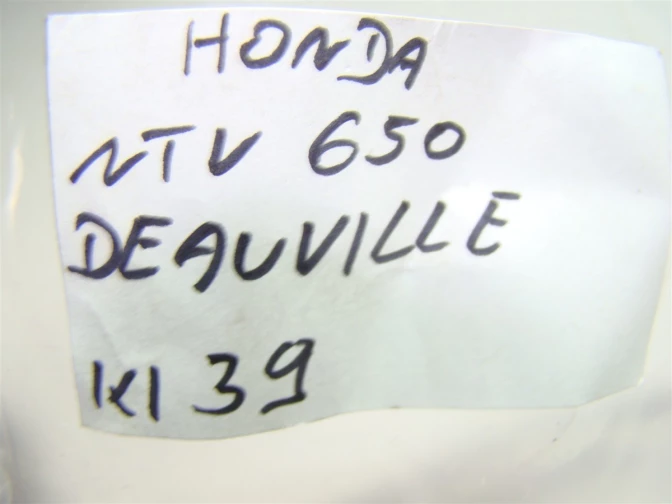 HONDA
NTV 650
DEAUVILLE
KI 39